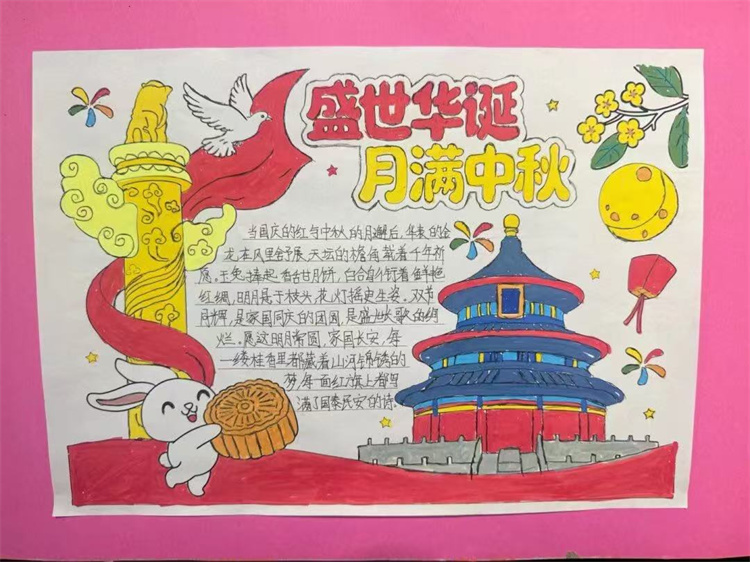 盛世华诞
月满中秋
当国庆的红与中秋的月邂后，华表的金
龙在风里舒展，天坛的檐角载着千年祈
愿。玉兔捧起香甜月饼，白鸽衔着鲜艳
红绸，明月悬于枝头，花灯摇曳生姿。双节
同辉，是家国同庆的团圆，是盛世长歌的绚
烂。愿这明月常圆，家国长安，每
一缕桂香里都藏着山河锦绣的
梦，每一面红旗上都写
满了国泰民安的诗。